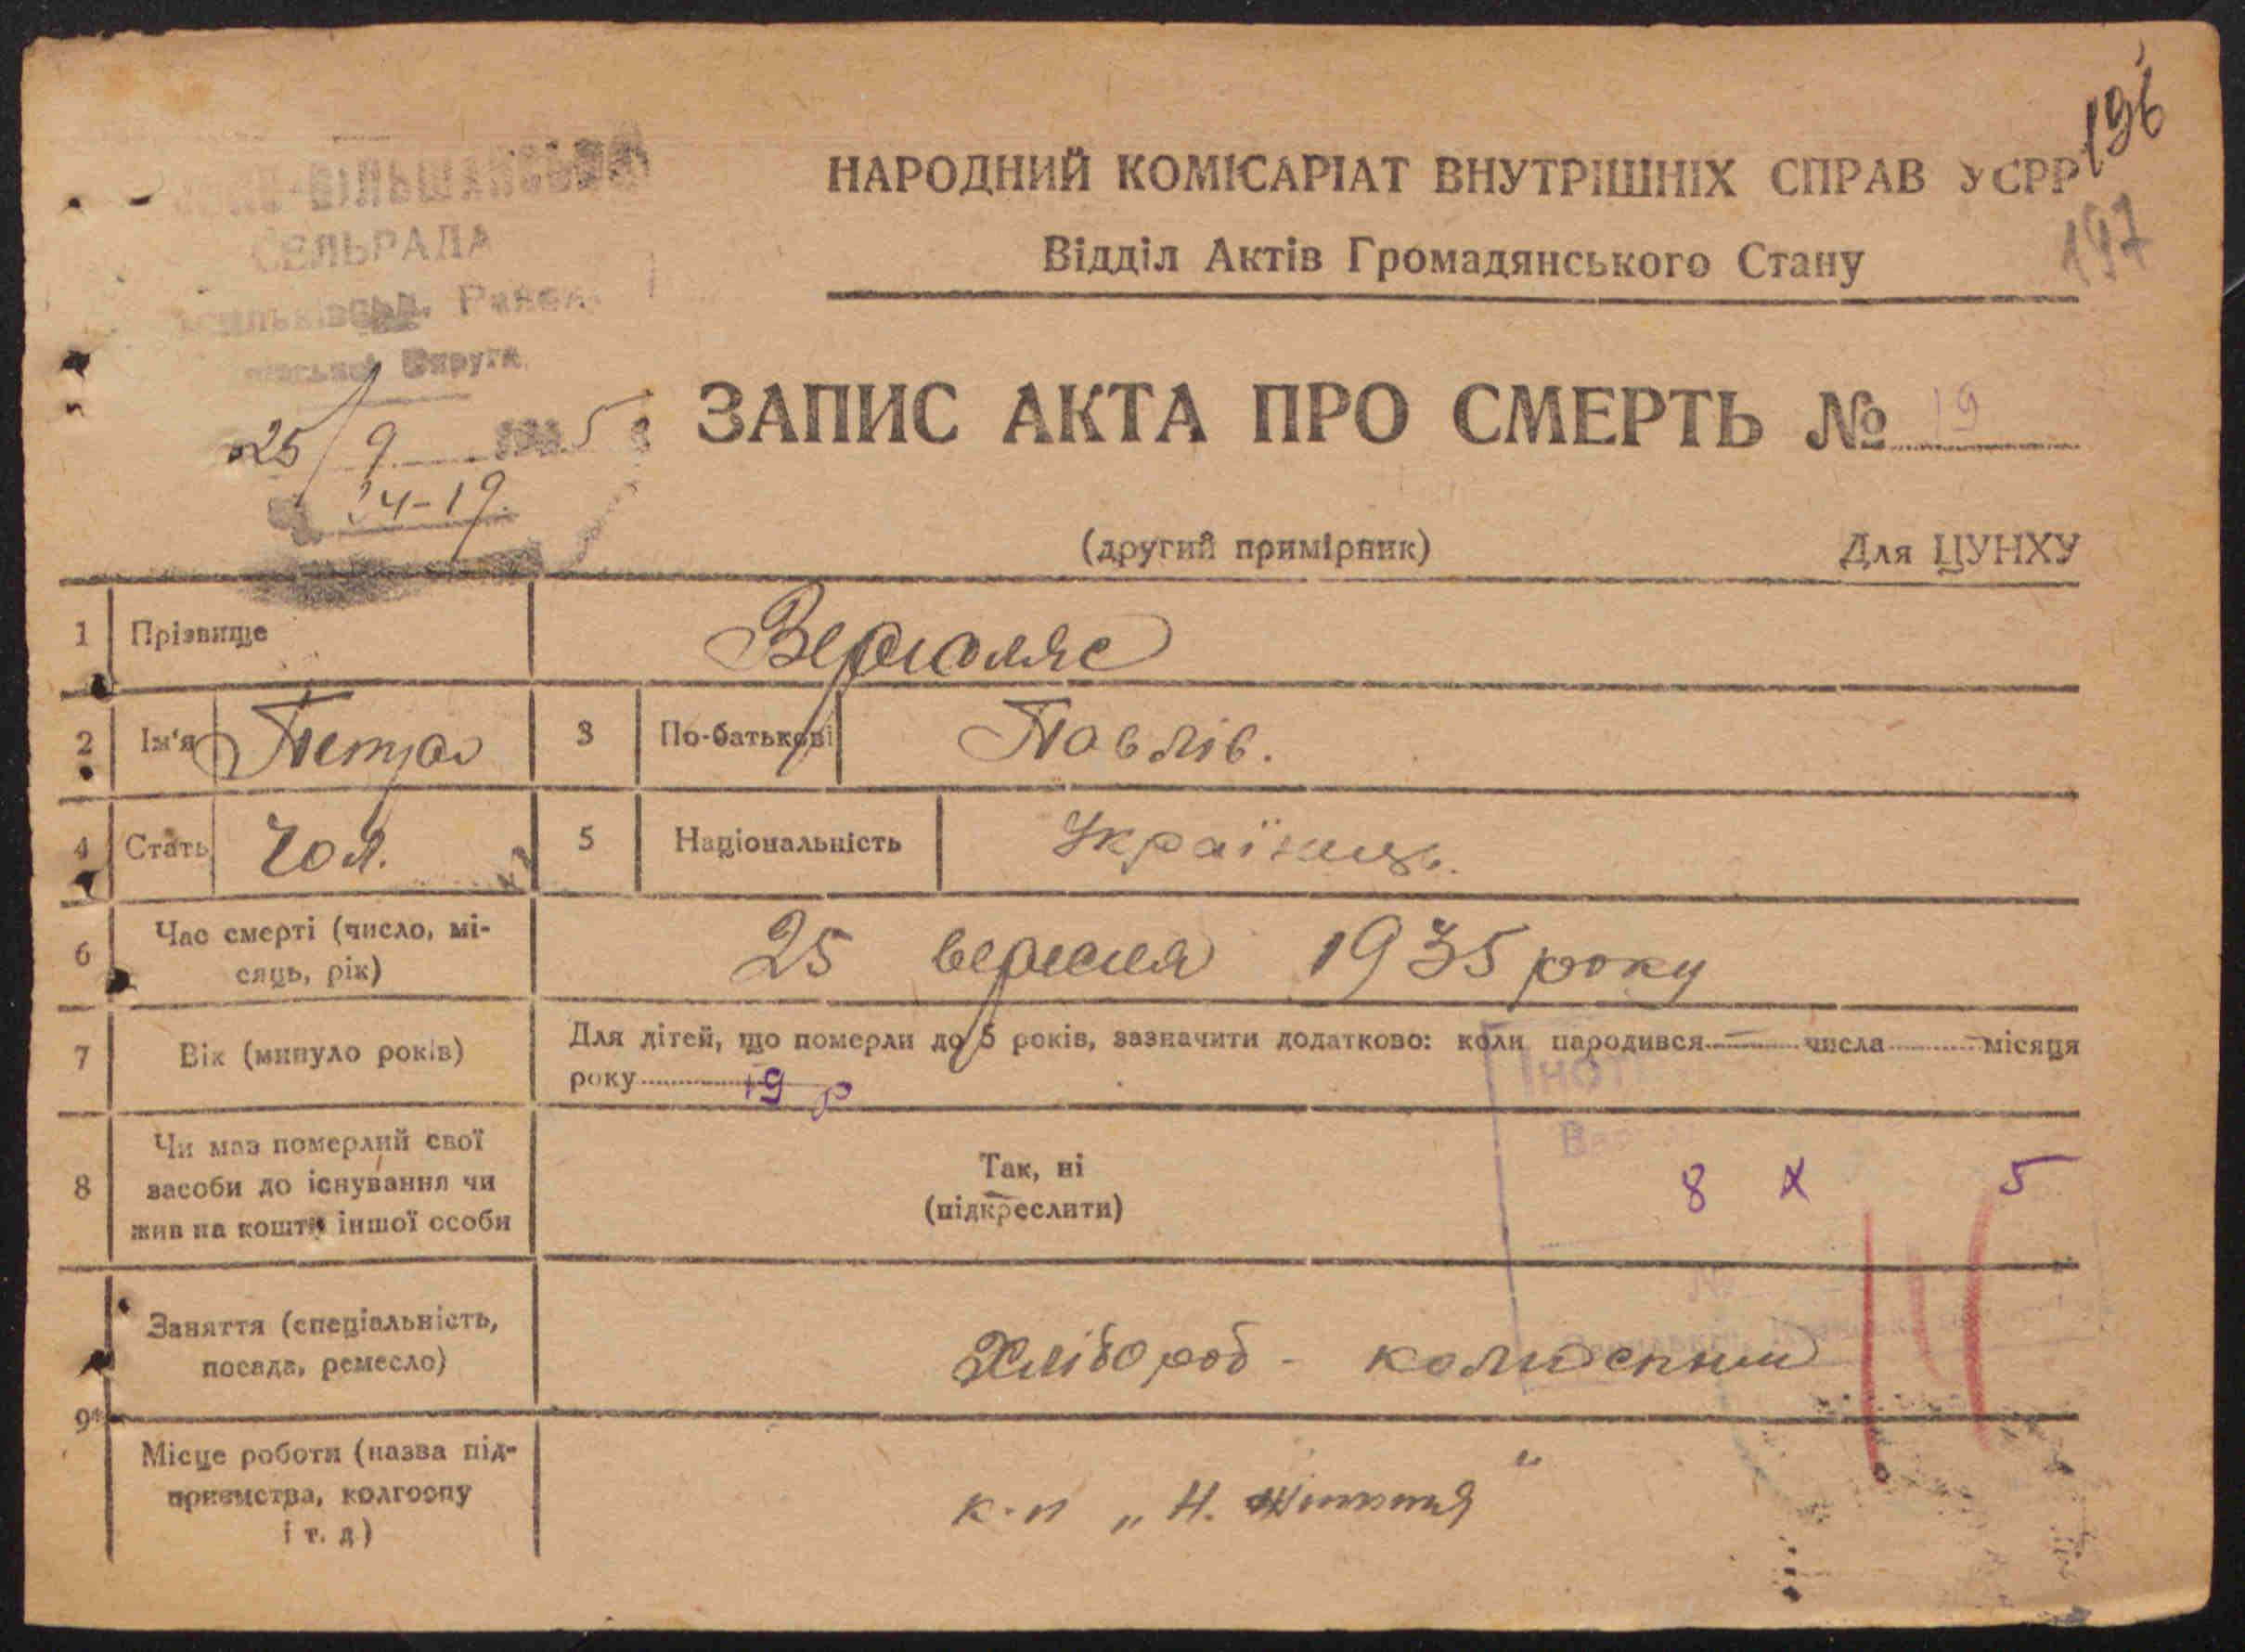 196
197
НАРОДНИЙ КОМІСАРІАТ ВНУТРІШНІХ СПРАВ УСРР
Відділ Актів Громадянського Стану
СЕЛЬРАДА
Округи
25/9 1935
24-19.
ЗАПИС АКТА ПРО СМЕРТЬ № 19
(другий примірник) Для ЦУНХУ
1 Прізвище
2 Ім'я Петро 3 По-батькові Павлів.
4 Стать Чол. 5 Національність Українець.
6 Час смерті (число, мі-
сяць, рік) 25 вересня 1935 року
7 Вік (минуло років) Для дітей, що померли до 5 років, зазначити додатково: коли народився — числа — місяця
року 19 р
8 Чи мав померлий свої
засоби до існування чи
жив на кошти іншої особи
Так, ні
(підкреслити)
8 х 5
9* Заняття (спеціальність,
посада, ремесло) Хлібороб -
Місце роботи (назва під-
приємства, колгоспу
і т. д) „Н. Життя"